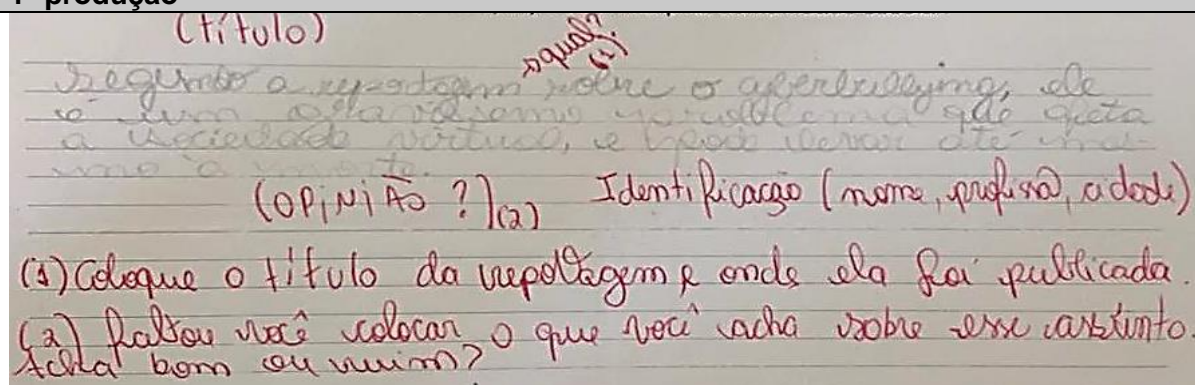 1ª produção
(título)
qual? (1)
Segundo a reportagem sobre o cyberbullying, ele
é um que afeta
a sociedade virtual, e pode levar até mes-
mo a morte.
(OPINIÃO?)(2) Identificação (nome, profissão, cidade)
(1) Coloque o título da reportagem e onde ela foi publicada.
(2) Faltou você colocar o que você acha sobre esse assunto.
Acha bom ou ruim?